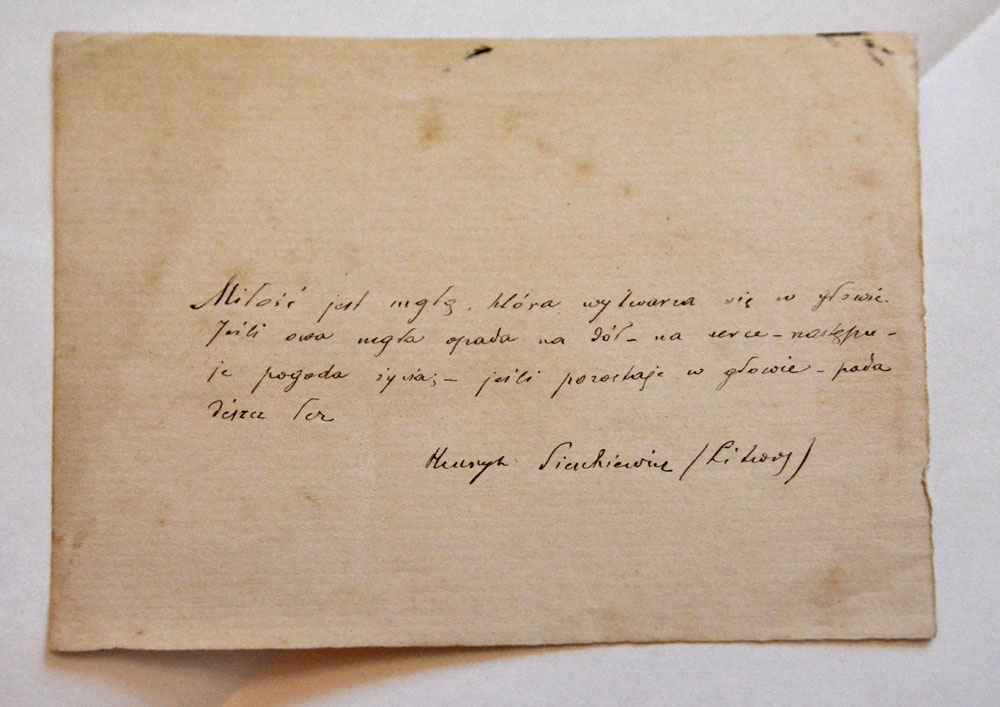 Miłość jest mgłą, która wytwarza się w głowie.
Jeśli owa mgła opada na dół – na serce – następu-
je pogoda życia; – jeśli pozostaje w głowie – pada
deszcz łez
Henryk Sienkiewicz (Litwos)